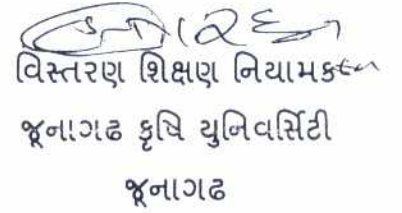 વિસ્તરણ શિક્ષણ નિયામક
જૂનાગઢ કૃષિ યુનિવર્સિટી
જૂનાગઢ